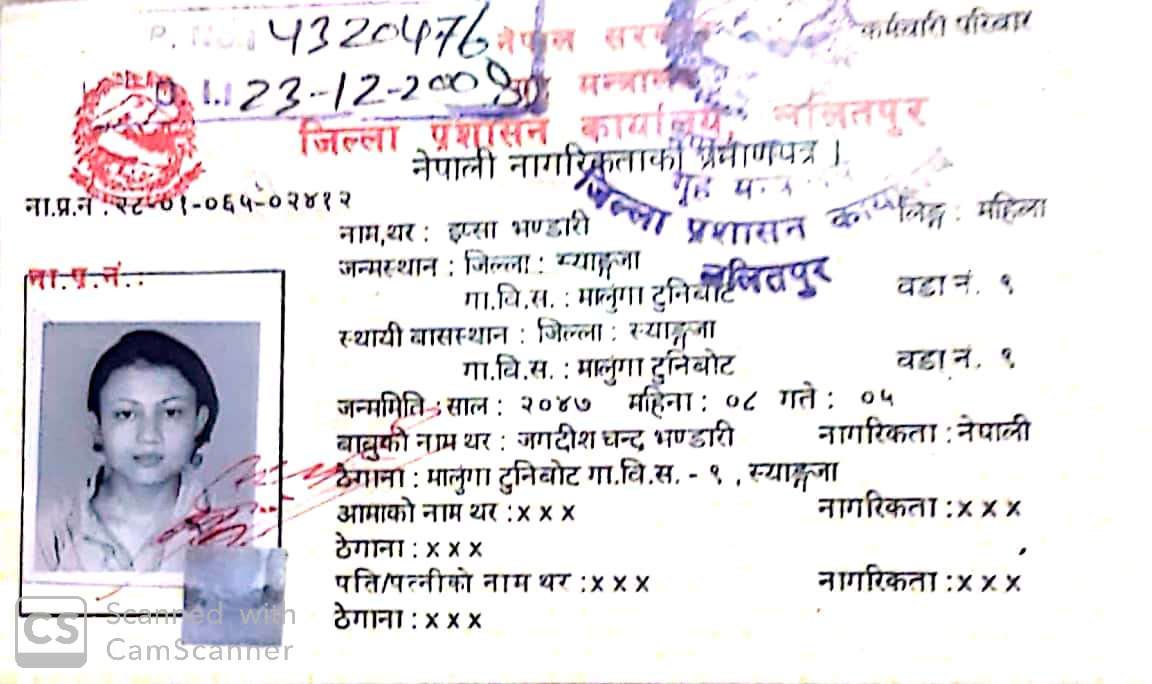 P. No. 4320476 नेपाल सरकार कर्मचारी परिवार
D.I. 23-12-2009 गृह मन्त्रालय
जिल्ला प्रशासन कार्यालय, ललितपुर
नेपाली नागरिकताको प्रमाणपत्र ।
जिल्ला प्रशासन
ललितपुर
ना.प्र.न : २८-०१-०६५-०२४१२
लिङ्ग : महिला
नाम,थर : इप्सा भण्डारी
जन्मस्थान : जिल्ला : स्याङ्गजा
ना.प्र.नं.:
गा.वि.स. : मालुंगा टुनिबोट वडा नं. १
स्थायी बासस्थान : जिल्ला : स्याङ्गजा
गा.वि.स. : मालुंगा टुनिबोट वडा नं. १
जन्ममिति : साल : २०४७ महिना : ०८ गते : ०५
बाबुको नाम थर : जगदीश चन्द्र भण्डारी नागरिकता : नेपाली
ठेगाना : मालुंगा टुनिबोट गा.वि.स. - १ , स्याङ्गजा
आमाको नाम थर : x x x नागरिकता : x x x
ठेगाना : x x x
पति/पत्नीको नाम थर : x x x नागरिकता : x x x
ठेगाना : x x x
CS Scanned with
CamScanner